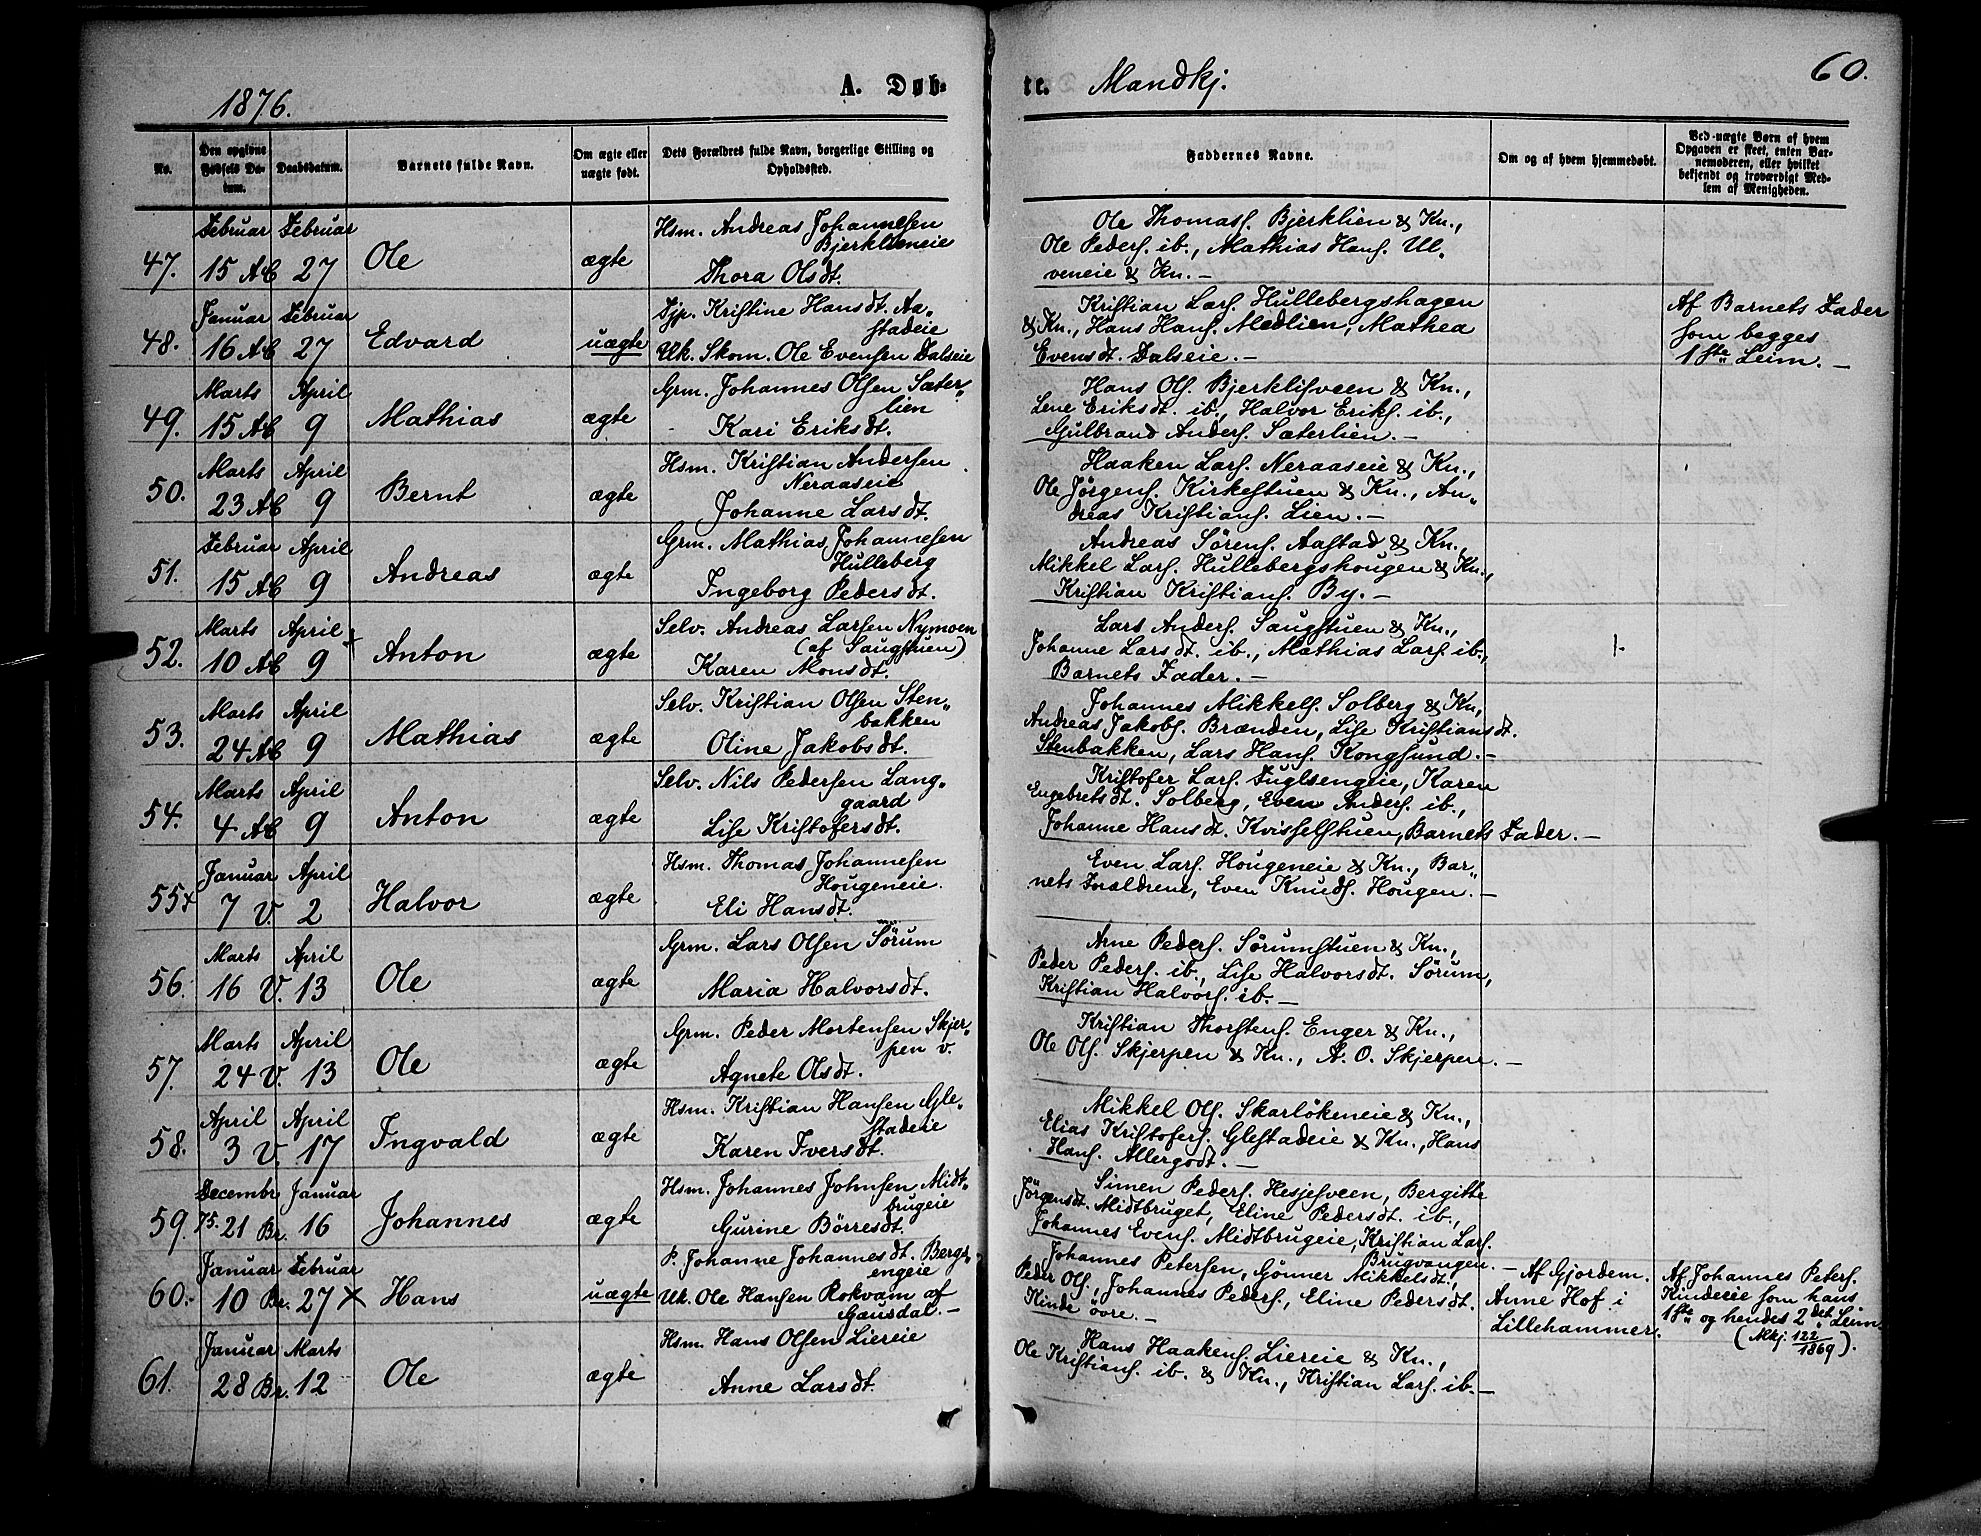 1876.
A. Døbte. Mandkj.
60.
No.
Den opgivne Fødsels Datum.
Daabsdatum.
Barnets fulde Navn.
Om ægte eller uægte født.
Dets Forældres fulde Navn, borgerlige Stilling og Opholdssted.
Faddernes Navne.
Om og af hvem hjemmedøbt.
Ved uægte Børn af hvem Opgaven er skeet, enten Barnemoderen, eller hvilket bekjendt og troværdigt Medlem af Menigheden.
47. Februar 15 AB Februar 27 Ole ægte
Hsm. Andreas Johannesen
Bjerklieneie
Thora Olsdt.
Ole Thomass. Bjerklien & Kn.,
Ole Peders. ib., Mathias Hans. Ul-
veneie & Kn. —
48. Januar 16 AB Februar 27 Edvard uægte
Pjp. Kristine Hansdt. Aa-
stadeie
Uk. Skom. Ole Evensen Dalseie
Kristian Lars. Hullebergshagen
& Kn., Hans Hans. Medlien, Mathea
Evensdt. Dalseie. —
Af Barnets Fader
som begges
1ste Leirm. —
49. Marts 15 AB April 9 Mathias ægte
Grm. Johannes Olsen Sæter-
lien
Kari Eriksdt.
Hans Ols. Bjerklisveen & Kn.,
Lene Eriksdt. ib., Halvor Eriks. ib.,
Gulbrand Anders. Sæterlien. —
50. Marts 23 AB April 9 Bernt ægte
Hsm. Kristian Andersen
Neraaseie
Johanne Larsdt.
Haaken Lars. Neraaseie & Kn.,
Ole Jörgens. Kirkestuen & Kn., An-
dreas Kristians. Lien. —
51. Februar 15 AB April 9 Andreas ægte
Grm. Mathias Johannesen
Hulleberg
Ingeborg Pedersdt.
Andreas Sörens. Aastad & Kn.,
Mikkel Lars. Hullebergshougen & Kn.,
Kristian Kristians. By. —
52. Marts 10 AB April 9 Anton ægte
Selv. Andreas Larsen Nymoen
(af Saugstuen)
Karen Monsdt.
Lars Anders. Saugstuen & Kn.,
Johanne Larsdt. ib., Mathias Lars. ib.,
Barnets Fader. —
53. Marts 24 AB April 9 Mathias ægte
Selv. Kristian Olsen Sten-
bakken
Oline Jakobsdt.
Johannes Mikkels. Solberg & Kn.,
Andreas Jakobs. Brænden, Lise Kristiansdt.
Stenbakken, Lars Hans. Kongsund. —
54. Marts 4 AB April 9 Anton ægte
Selv. Nils Pedersen Lang-
gaard
Lise Kristofersdt.
Kristofer Lars. Fuglsengeie, Karen
Engebretsdt. Solberg, Even Anders. ib.,
Johanne Hansdt. Kvisselstuen, Barnets Fader. —
55 x Januar 7 V. April 2 Halvor ægte
Hsm. Thomas Johannesen
Hougeneie.
Eli Hansdt.
Even Lars. Hougeneie & Kn., Bar-
nets Forældrene, Even Knuds. Hougen. —
56. Marts 16 V. April 13 Ole ægte
Grm. Lars Olsen Sörum
Maria Halvorsdt.
Arne Peders. Sörumstuen & Kn.,
Peder Peders. ib., Lise Halvorsdt. Sörum,
Kristian Halvors. ib. —
57. Marts 24 V. April 13 Ole ægte
Grm. Peder Mortensen Skjer-
pen v.
Agnete Olsdt.
Kristian Thorstens. Enger & Kn.,
Ole Ols. Skjerpen & Kn., A. O. Skjerpen. —
58. April 3 V. April 17 Ingvald ægte
Hsm. Kristian Hansen Gle-
stadeie
Karen Iversdt.
Mikkel Ols. Skarlökeneie & Kn.,
Elias Kristofers. Glestadeie & Kn., Hans
Hans. Allergodt. —
59. Decembr. 75. 21 Br. Januar 16 Johannes ægte
Hsm. Johannes Johnsen Midt-
brugeie
Gurine Börresdt.
Simen Peders. Hesjesveen, Bergitte
Jörgensdt. Midtbruget, Eline Pedersdt. ib.,
Johannes Evens. Midtbrugeie, Kristian Lars.
Brugvangen. —
60. Januar 10 Br. Februar 27 x Hans uægte
P. Johanne Johannesdt. Bergs-
engeie
Uk. Ole Hansen Rokvam af
Gausdal. —
Johannes Petersen, Gönner Mikkelsdt.,
Peder Ols., Johannes Peders., Eline Pedersdt.
Kinde övre. —
Af Gjordem.
Anne Hof i
Lillehammer.
Af Johannes Peters.
Kindeeie som hans
1ste og hendes 2det Leirm.
(Mkj. 122/1869).
61. Januar 28 Br. Marts 12 Ole ægte
Hsm. Hans Olsen Liereie
Anne Larsdt.
Hans Haakens. Liereie & Kn.,
Ole Kristians. ib. & Kn., Kristian Lars. ib. —